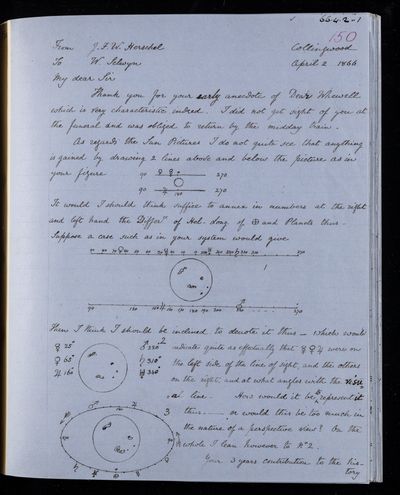 66.4.2-1
150
From J. F. W. Herschel Collingwood
To W. Selwyn April 2 1866
My dear Sir
Thank you for your early anecdote of Dear Whewell
which is very characteristic indeed. I did not get sight of you at
the funeral and was obliged to return by the midday train.
As regards the Sun Pictures I do not quite see that anything
is gained by drawing 2 lines above and below the picture as in
your figure
90 270
90 180 270
It would I should think suffice to annex in numbers at the right
and left hand the Differ.ce of Hel. Long. of ⊕ and Planets thus
Suppose a case such as in your system would give
270
90
Here I think I should be inclined to denote it thus — which would
☿ 25° ♂ 220° 2 indicate quite as effectually that ☿ ♀ ♃ were on
♀ 65° ♄ 310° the left side of the line of sight, and the others
♃ 160° ♅ 330° on the right, and at what angles with the
line. How would it be to represent it
3 thus or would this be too much in
the nature of a perspective view? On the
whole I lean however to No 2.
Your 3 years contribution to the his-
tory